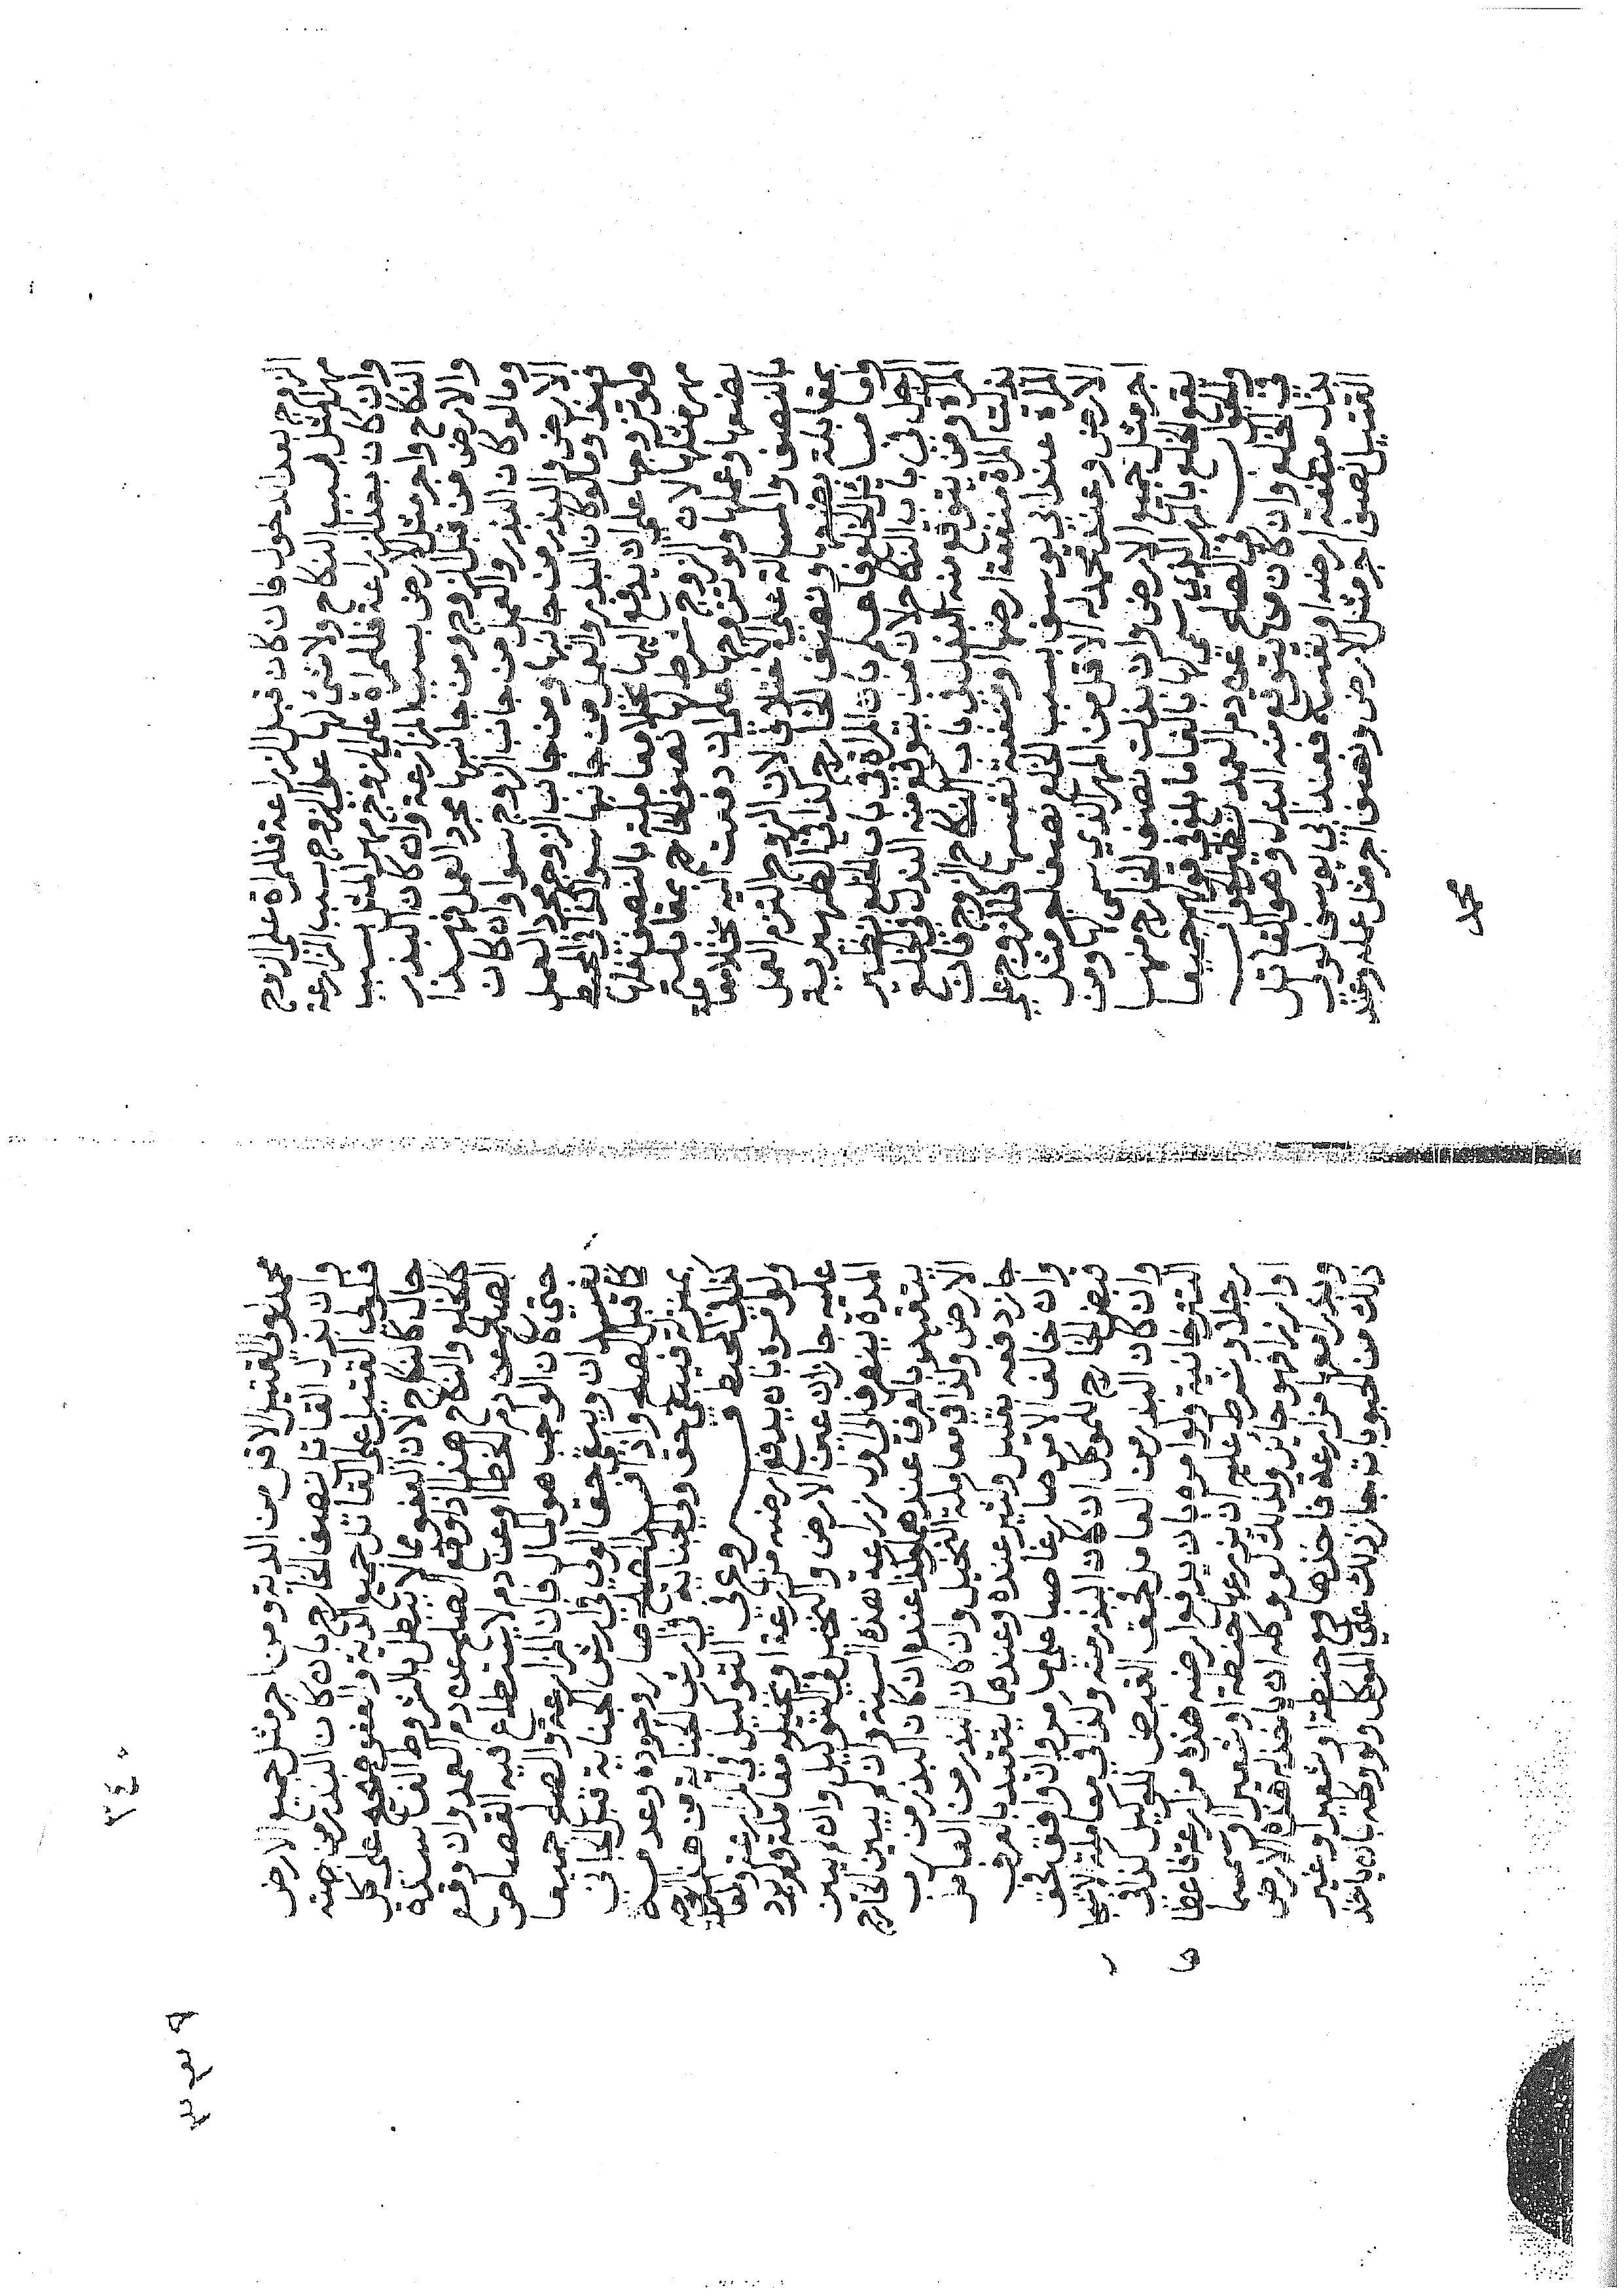 الزوج بعد الدخول فان كان قبل الزراعة فللمرأة على الزوج
مهر المثل بسبب النكاح ولا شئ لها على الزوج بسبب المزارعة
وان كان بعد الزراعة فللمرأة على الزوج مهر المثل بسبب
النكاح واجر مثل الارض بسبب المزارعة وان كان البذر
والارض من قبل الزوج ومن جانبها مجرد العمل فهذا
وما لو كان البذر والعمل من جانب الزوج سواء وان كان
الارض والبذر من جانبها ومن جانب الزوج مجرد العمل
فهذا وما لو كان البذر والعمل من جانبها سواء كذا في المحيط
ولو تزوجها على ان يدفع اليها نخلا معاملة بالنصف فلها
مهر مثلها لان الزوج شرط لها نصف الخارج بمقابلة
بضعها وعملها ولو تزوجها على ان دفعت اليه نخلا معاملة
بالنصف والمسالة على الاختلاف لان الزوج التزم العمل
بمقابلة بضعها ونصف الخارج كذا في الظهيرية
واما مسائل الخلع فاعلم بان المرأة في باب الخلع نظير
الرجل في باب النكاح لان من يتوقع منه البذل في الخلع
المرأة ومن يتوقع منه البذل في باب النكاح الزوج فان
بذلت المرأة منفعة ارضها او منفعة نفسها فللزوج على
المرأة عند ابي يوسف بسبب الخلع نصف اجر مثل
الارض وعند محمد له الاقل من المهر الذي سمى لها ومن
اجر مثل جميع الارض وان بذلت نصف الخارج منها
يقع الخلع بالمهر الذي سمى لها بالغا ما بلغ في قولهم جميعا
والجواب في الصلح عن دم العمد نظير الجواب
في الخلع وان كان من يتوقع منه البدل وهو القاتل
بذل منفعة ارضه او نفسه فعند ابي يوسف لولي
القتيل نصف اجر مثل الارض ونصف اجر مثل عمله وعند
محمد
محمد لولي القتيل الاقل من الدية ومن اجر مثل جميع الارض
وان بذل القاتل نصف الخارج بان كان البذر من جهته
فلولي القتيل على القاتل جميع الدية والعفو صحيح على كل
حال كالنكاح لان العفو مما لا يبطل بالشروط الفاسدة
كالخلع والنكاح هذا اذا وقع الصلح عن دم العمد وان وقع
الصلح عن دم الخطا او عن دم لا يستطاع فيه القصاص
حتى كان الواجب هو المال فان المزارعة والصلح جميعا
يفسدان ويبقى حق الولي في ارش الجناية قبل الجاني
كما قبل الصلح واذا فسد الصلح صار وجوده وعدمه
بمنزلة فيبقى حق ولي الجناية في ارش الجناية من هذا الوجه
كذا في المحيط في التوكيل في المزارعة والمعاملة
ولو امره بان يدفع ارضه مزارعة او نخيله معاملة ولم يزد
عليه جاز ان عين الارض والنخيل في التوكيل وان لم يبين
المدة ينصرف الى اول زراعة هذه السنة وان لم يبين الخارج
يتقيد بالعرف عندهما وكذا عنده ان كان البذر من رب
الارض وكذا في معاملة النخيل وان كان البذر من العامل
جاز دفعه بقليل وكثير عنده وعندهما يتقيد بالعرف
وان خالف الامر صار غاصبا على ما مر وان وافق فحق
قبض الخارج للموكل ان كان البذر منه وكذا في معاملة الاشجار
وان كان البذر من العامل فحق القبض للوكيل كذا في
التتارخانية ولو امره بان يدفع ارضه هذه مزارعة فاعطاها
رجلا وشرط عليه ان يزرعها حنطة او شعيرا او سمسما
او ارزا فهو جائز وكذلك لو وكله ان ياخذ له هذه الارض
وبذرا معها مزارعة فاخذها مع حنطة او شعير او غير
ذلك من الحبوبات جاز ذلك على الموكل ولو وكله بان ياخذ
٣٤٠
٣٣٩